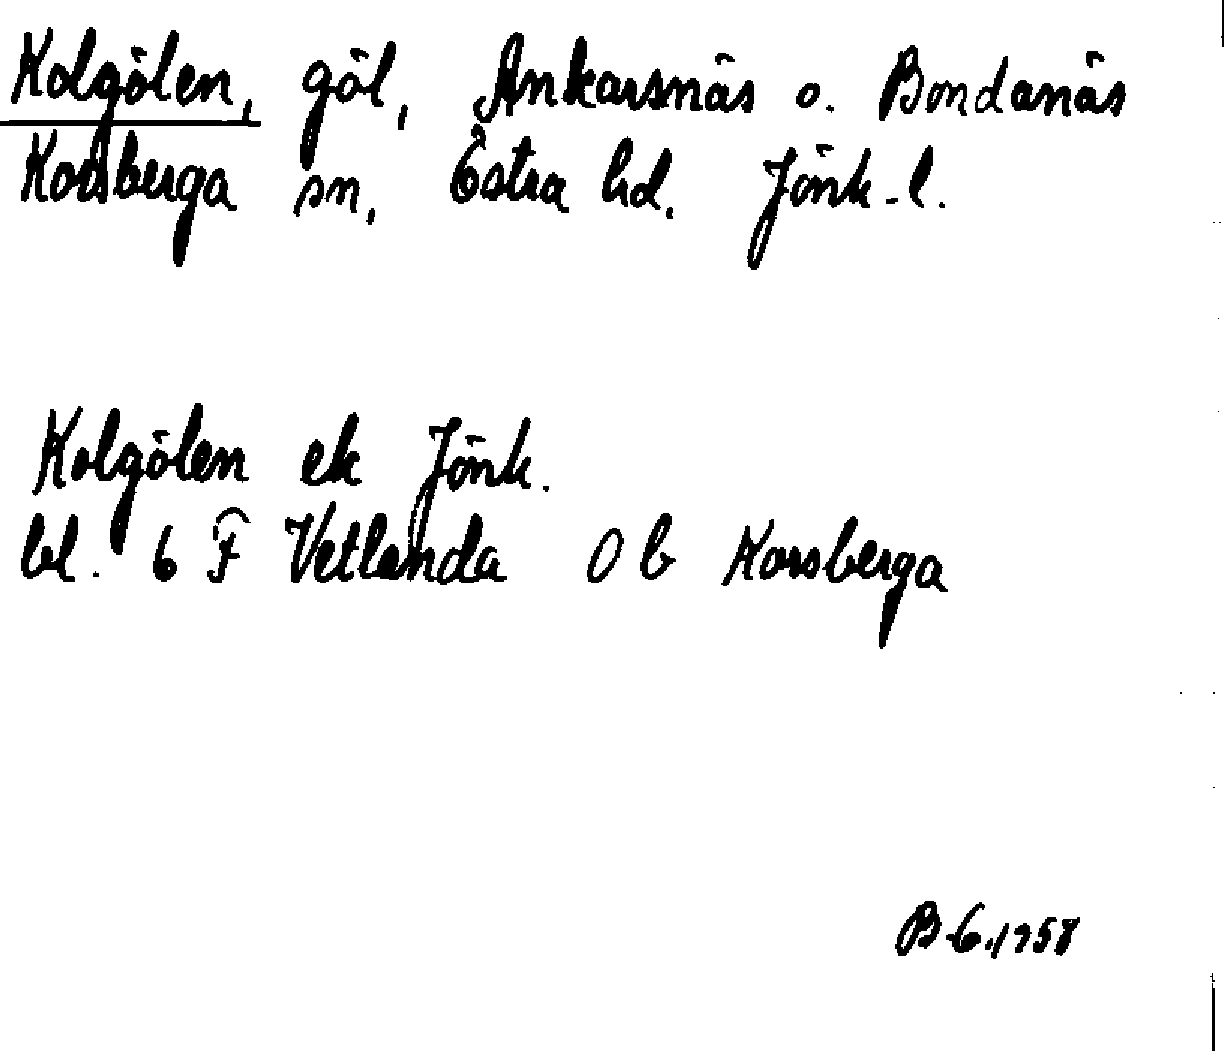 Kolgölen, göl, Ankarsnäs o. Bondanäs
Korsberga sn, Östra hd. Jönk-l.
Kolgölen ek Jönk.
bl. 6 F Vetlanda Ob Korsberga
B-G.1958